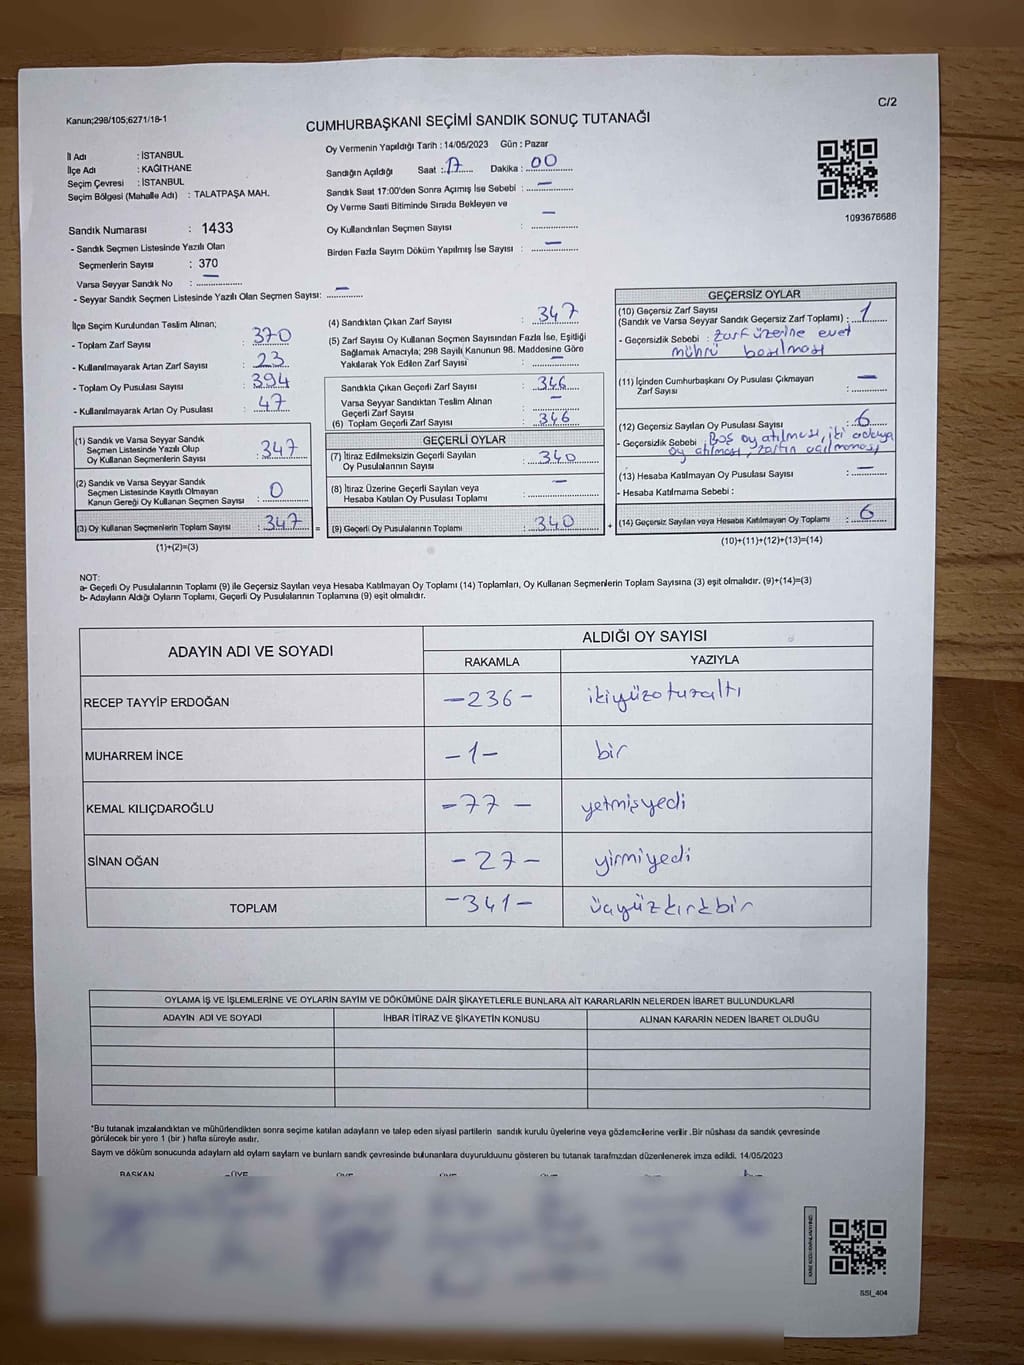 C/2
Kanun;298/105;6271/18-1
CUMHURBAŞKANI SEÇİMİ SANDIK SONUÇ TUTANAĞI
İl Adı : İSTANBUL
İlçe Adı : KAĞITHANE
Seçim Çevresi : İSTANBUL
Seçim Bölgesi (Mahalle Adı) : TALATPAŞA MAH.
Oy Vermenin Yapıldığı Tarih : 14/05/2023 Gün : Pazar
Sandığın Açıldığı Saat : 17 Dakika : 00
Sandık Saat 17:00'den Sonra Açımış İse Sebebi : —
Oy Verme Saati Bitiminde Sırada Bekleyen ve
Oy Kullandırılan Seçmen Sayısı : —
Birden Fazla Sayım Döküm Yapılmış İse Sayısı : —
1093676686
Sandık Numarası : 1433
- Sandık Seçmen Listesinde Yazılı Olan
Seçmenlerin Sayısı : 370
Varsa Seyyar Sandık No : —
- Seyyar Sandık Seçmen Listesinde Yazılı Olan Seçmen Sayısı: —
İlçe Seçim Kurulundan Teslim Alınan;
- Toplam Zarf Sayısı : 370
- Kullanılmayarak Artan Zarf Sayısı : 23
- Toplam Oy Pusulası Sayısı : 394
- Kullanılmayarak Artan Oy Pusulası : 47
(1) Sandık ve Varsa Seyyar Sandık
Seçmen Listesinde Yazılı Olup
Oy Kullanan Seçmenlerin Sayısı : 347
(2) Sandık ve Varsa Seyyar Sandık
Seçmen Listesinde Kayıtlı Olmayan
Kanun Gereği Oy Kullanan Seçmen Sayısı : 0
(3) Oy Kullanan Seçmenlerin Toplam Sayısı : 347 =
(1)+(2)=(3)
(4) Sandıktan Çıkan Zarf Sayısı : 347
(5) Zarf Sayısı Oy Kullanan Seçmen Sayısından Fazla İse, Eşitliği
Sağlamak Amacıyla; 298 Sayılı Kanunun 98. Maddesine Göre
Yakılarak Yok Edilen Zarf Sayısı : —
Sandıkta Çıkan Geçerli Zarf Sayısı : 346
Varsa Seyyar Sandıktan Teslim Alınan
Geçerli Zarf Sayısı : —
(6) Toplam Geçerli Zarf Sayısı : 346
GEÇERLİ OYLAR
(7) İtiraz Edilmeksizin Geçerli Sayılan
Oy Pusulalarının Sayısı : 340
(8) İtiraz Üzerine Geçerli Sayılan veya
Hesaba Katılan Oy Pusulası Toplamı : —
(9) Geçerli Oy Pusulalarının Toplamı : 340 +
GEÇERSİZ OYLAR
(10) Geçersiz Zarf Sayısı
(Sandık ve Varsa Seyyar Sandık Geçersiz Zarf Toplamı) : 1
- Geçersizlik Sebebi : Zarf üzerine evet
mührü basılması
(11) İçinden Cumhurbaşkanı Oy Pusulası Çıkmayan
Zarf Sayısı : —
(12) Geçersiz Sayılan Oy Pusulası Sayısı : 6
- Geçersizlik Sebebi : Boş oy atılması, iki adaya
oy atılması, zarfın açılmaması
(13) Hesaba Katılmayan Oy Pusulası Sayısı : —
- Hesaba Katılmama Sebebi :
(14) Geçersiz Sayılan veya Hesaba Katılmayan Oy Toplamı : 6
(10)+(11)+(12)+(13)=(14)
NOT:
a- Geçerli Oy Pusulalarının Toplamı (9) ile Geçersiz Sayılan veya Hesaba Katılmayan Oy Toplamı (14) Toplamları, Oy Kullanan Seçmenlerin Toplam Sayısına (3) eşit olmalıdır. (9)+(14)=(3)
b- Adayların Aldığı Oyların Toplamı, Geçerli Oy Pusulalarının Toplamına (9) eşit olmalıdır.
ADAYIN ADI VE SOYADI ALDIĞI OY SAYISI
RAKAMLA YAZIYLA
RECEP TAYYİP ERDOĞAN -236- ikiyüzoturaltı
MUHARREM İNCE -1- bir
KEMAL KILIÇDAROĞLU -77- yetmişyedi
SİNAN OĞAN -27- yirmiyedi
TOPLAM -341- üçyüzkırkbir
OYLAMA İŞ VE İŞLEMLERİNE VE OYLARIN SAYIM VE DÖKÜMÜNE DAİR ŞİKAYETLERLE BUNLARA AİT KARARLARIN NELERDEN İBARET BULUNDUKLARI
ADAYIN ADI VE SOYADI İHBAR İTİRAZ VE ŞİKAYETİN KONUSU ALINAN KARARIN NEDEN İBARET OLDUĞU
*Bu tutanak imzalandıktan ve mühürlendikten sonra seçime katılan adayların ve talep eden siyasi partilerin sandık kurulu üyelerine veya gözlemcilerine verilir .Bir nüshası da sandık çevresinde
görülecek bir yere 1 (bir ) hafta süreyle asılır.
Sayım ve döküm sonucunda adayların aldı oyların sayıları ve bunların sandık çevresinde bulunanlara duyurulduunu gösteren bu tutanak tarafımızdan düzenlenerek imza edildi. 14/05/2023
BAŞKAN ÜYE
SSI_404